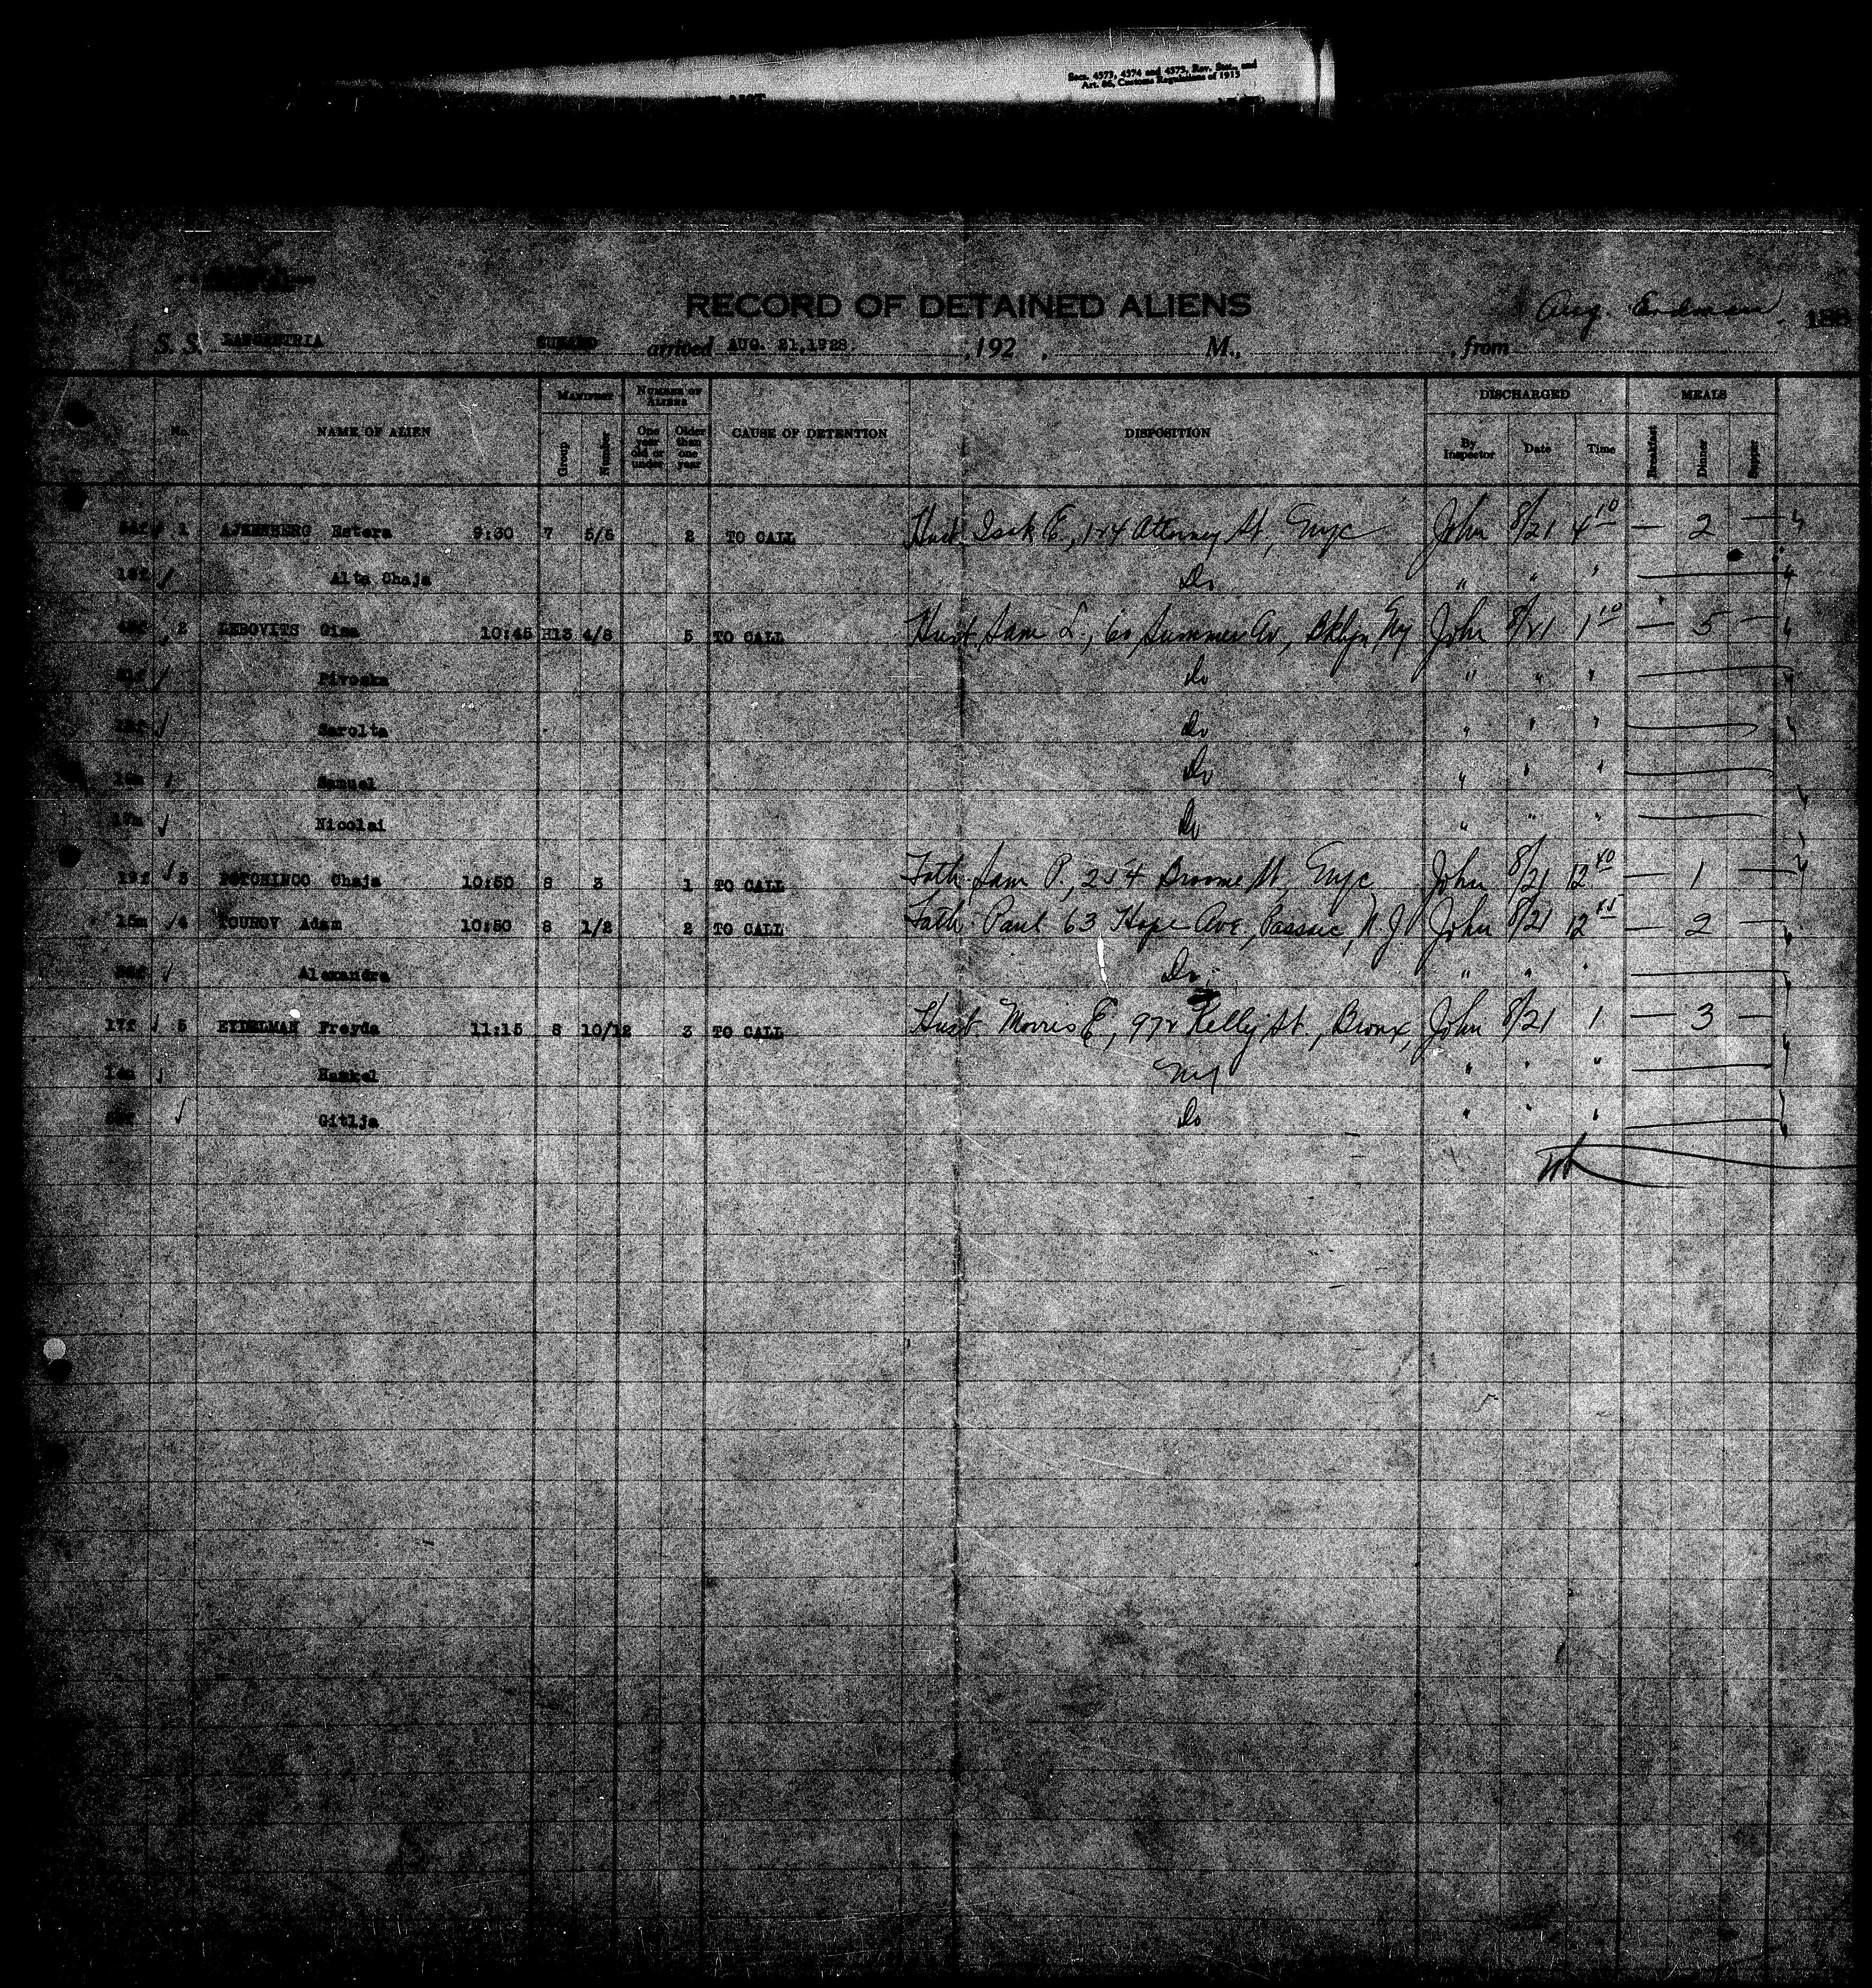 Secs. 4573, 4574 and 4575, Rev. Stat., and
Art. 86, Customs Regulations of 1915
RECORD OF DETAINED ALIENS
Aug. Erdman. 188
S. S. LANCASTRIA CUNARD arrived AUG. 21, 1928. , 192 , M., , from
No. NAME OF ALIEN MANIFEST Group Number NUMBER OF ALIENS One year old or under Older than one year CAUSE OF DETENTION DISPOSITION DISCHARGED By Inspector Date Time MEALS Breakfast Dinner Supper
1 AJZENBERG Estera 9:30 7 5/6 2 TO CALL Husb Isak E, 124 Attorney St, Nyc John 8/21 4 10 — 2 —
Alta Chaja Do " " "
2 LEBOVITS Gisa 10:45 H13 4/8 5 TO CALL Husb Sam L, 60 Summer Av, Bklyn Ny John 8/21 1 10 — 5 —
Piroska Do " " "
Sarolta Do " " "
Samuel Do " " "
Nicolai Do " " "
19f 3 Chaja 10:50 8 3 1 TO CALL Fath Sam P., 254 Broome St, Nyc John 8/21 12 40 — 1 —
15m 4 TOUHOV Adam 10:50 8 1/2 2 TO CALL Fath Paul 63 Hope Ave, Passaic, N.J John 8/21 12 — 2 —
Alexandra Do " " "
17f 5 EYDELMAN Freyda 11:15 8 10/12 3 TO CALL Husb Morris E, 972 Kelly St., Bronx, John 8/21 1 — 3 —
14m Haskel Ny " " "
Gitlja Do " " "